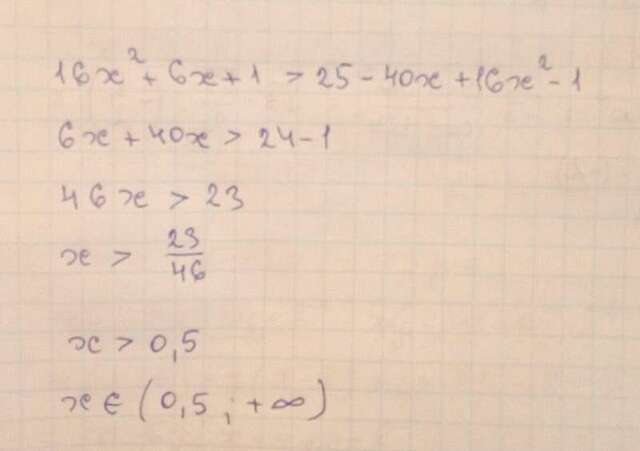 16x² + 6x + 1 > 25 - 40x + 16x² - 1
6x + 40x > 24 - 1
46x > 23
x > 23/46
x > 0,5
x ∈ (0,5 ; +∞)